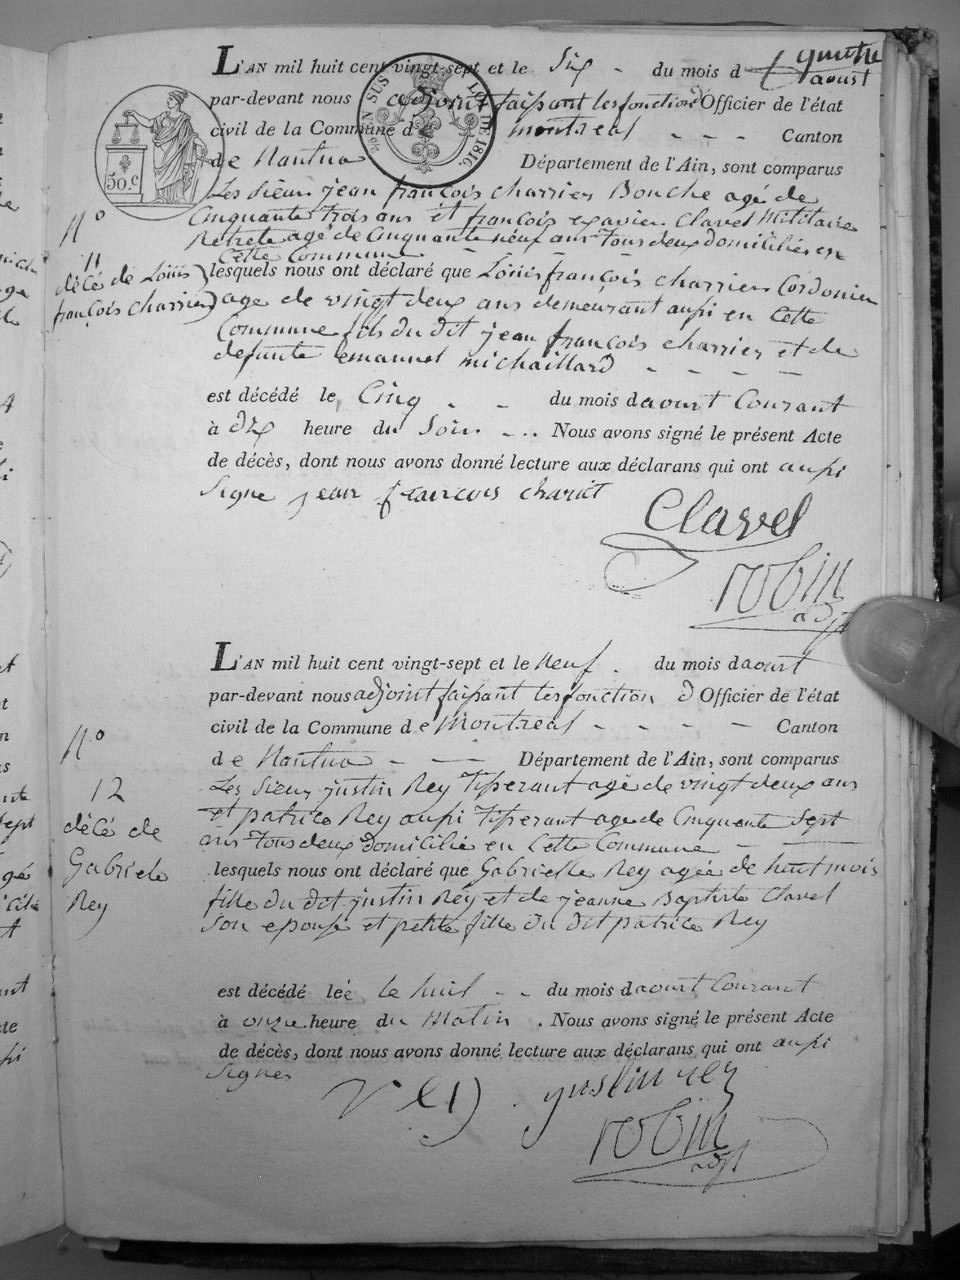 quatre
L'AN mil huit cent vingt-sept et le Six - du mois d'aoust
par-devant nous adjoint faisant les fonction d'Officier de l'état
civil de la Commune de montreal - - - Canton
de Nantua Département de l'Ain, sont comparus
Les Sieur jean françois charrier Bouche agé de
Cinquante trois ans et françois exavier Clavel Militaire
Retreté agé de Cinquante neuf ans tous deux domiciliés en
Cette Commune - - - -
50.C
EN SUS LOI DE 1816.
N°
11
décé de Louis
françois charrier
lesquels nous ont déclaré que Louis françois charrier Cordonier
age de vingt deux ans demeurant aussi en Cette
Commune fils du dit jean françois charrier et de
defunte emanuel michaillard - - - -
est décédé le Cinq - - du mois d'aoust Courant
à dix heure du Soir - .. Nous avons signé le présent Acte
de décès, dont nous avons donné lecture aux déclarans qui ont aussi
Signe jean francois chariet
Clavel
robin
adjt
L'AN mil huit cent vingt-sept et le Neuf . du mois d'aoust
par-devant nous adjoint faisant les fonction d'Officier de l'état
civil de la Commune de Montreal - - - - Canton
de Nantua - - - Département de l'Ain, sont comparus
Les Sieur justin Rey Tisserant agé de vingt deux ans
et patrice Rey aussi Tisserant age de Cinquante Sept
ans Tous deux domicilié en Cette Commune - - -
N°
12
décé de
Gabriele
Rey
lesquels nous ont déclaré que Gabrielle Rey agée de huit mois
fille du dit justin Rey et de jeanne Baptiste Clavel
Son epouse et petite fille du dit patrice Rey
est décédé leé le huit - - du mois d'aoust Courant
à onze heure du Matin . Nous avons signé le présent Acte
de décès, dont nous avons donné lecture aux déclarans qui ont aussi
Signes
justin rey
robin
adjt